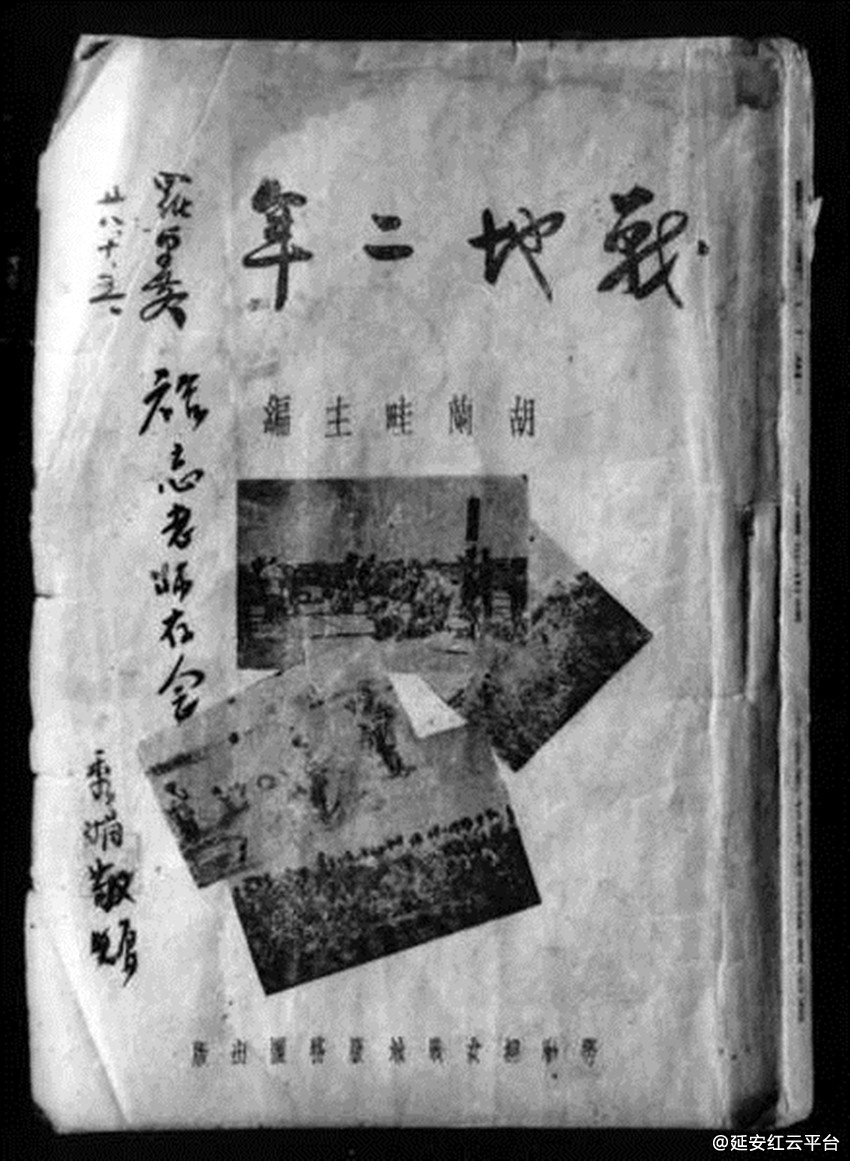 戰地二年
胡蘭畦主編
勞動婦女戰地服務團出版
志老師存念
秀娟敬贈
廿八、十、
@延安红云平台